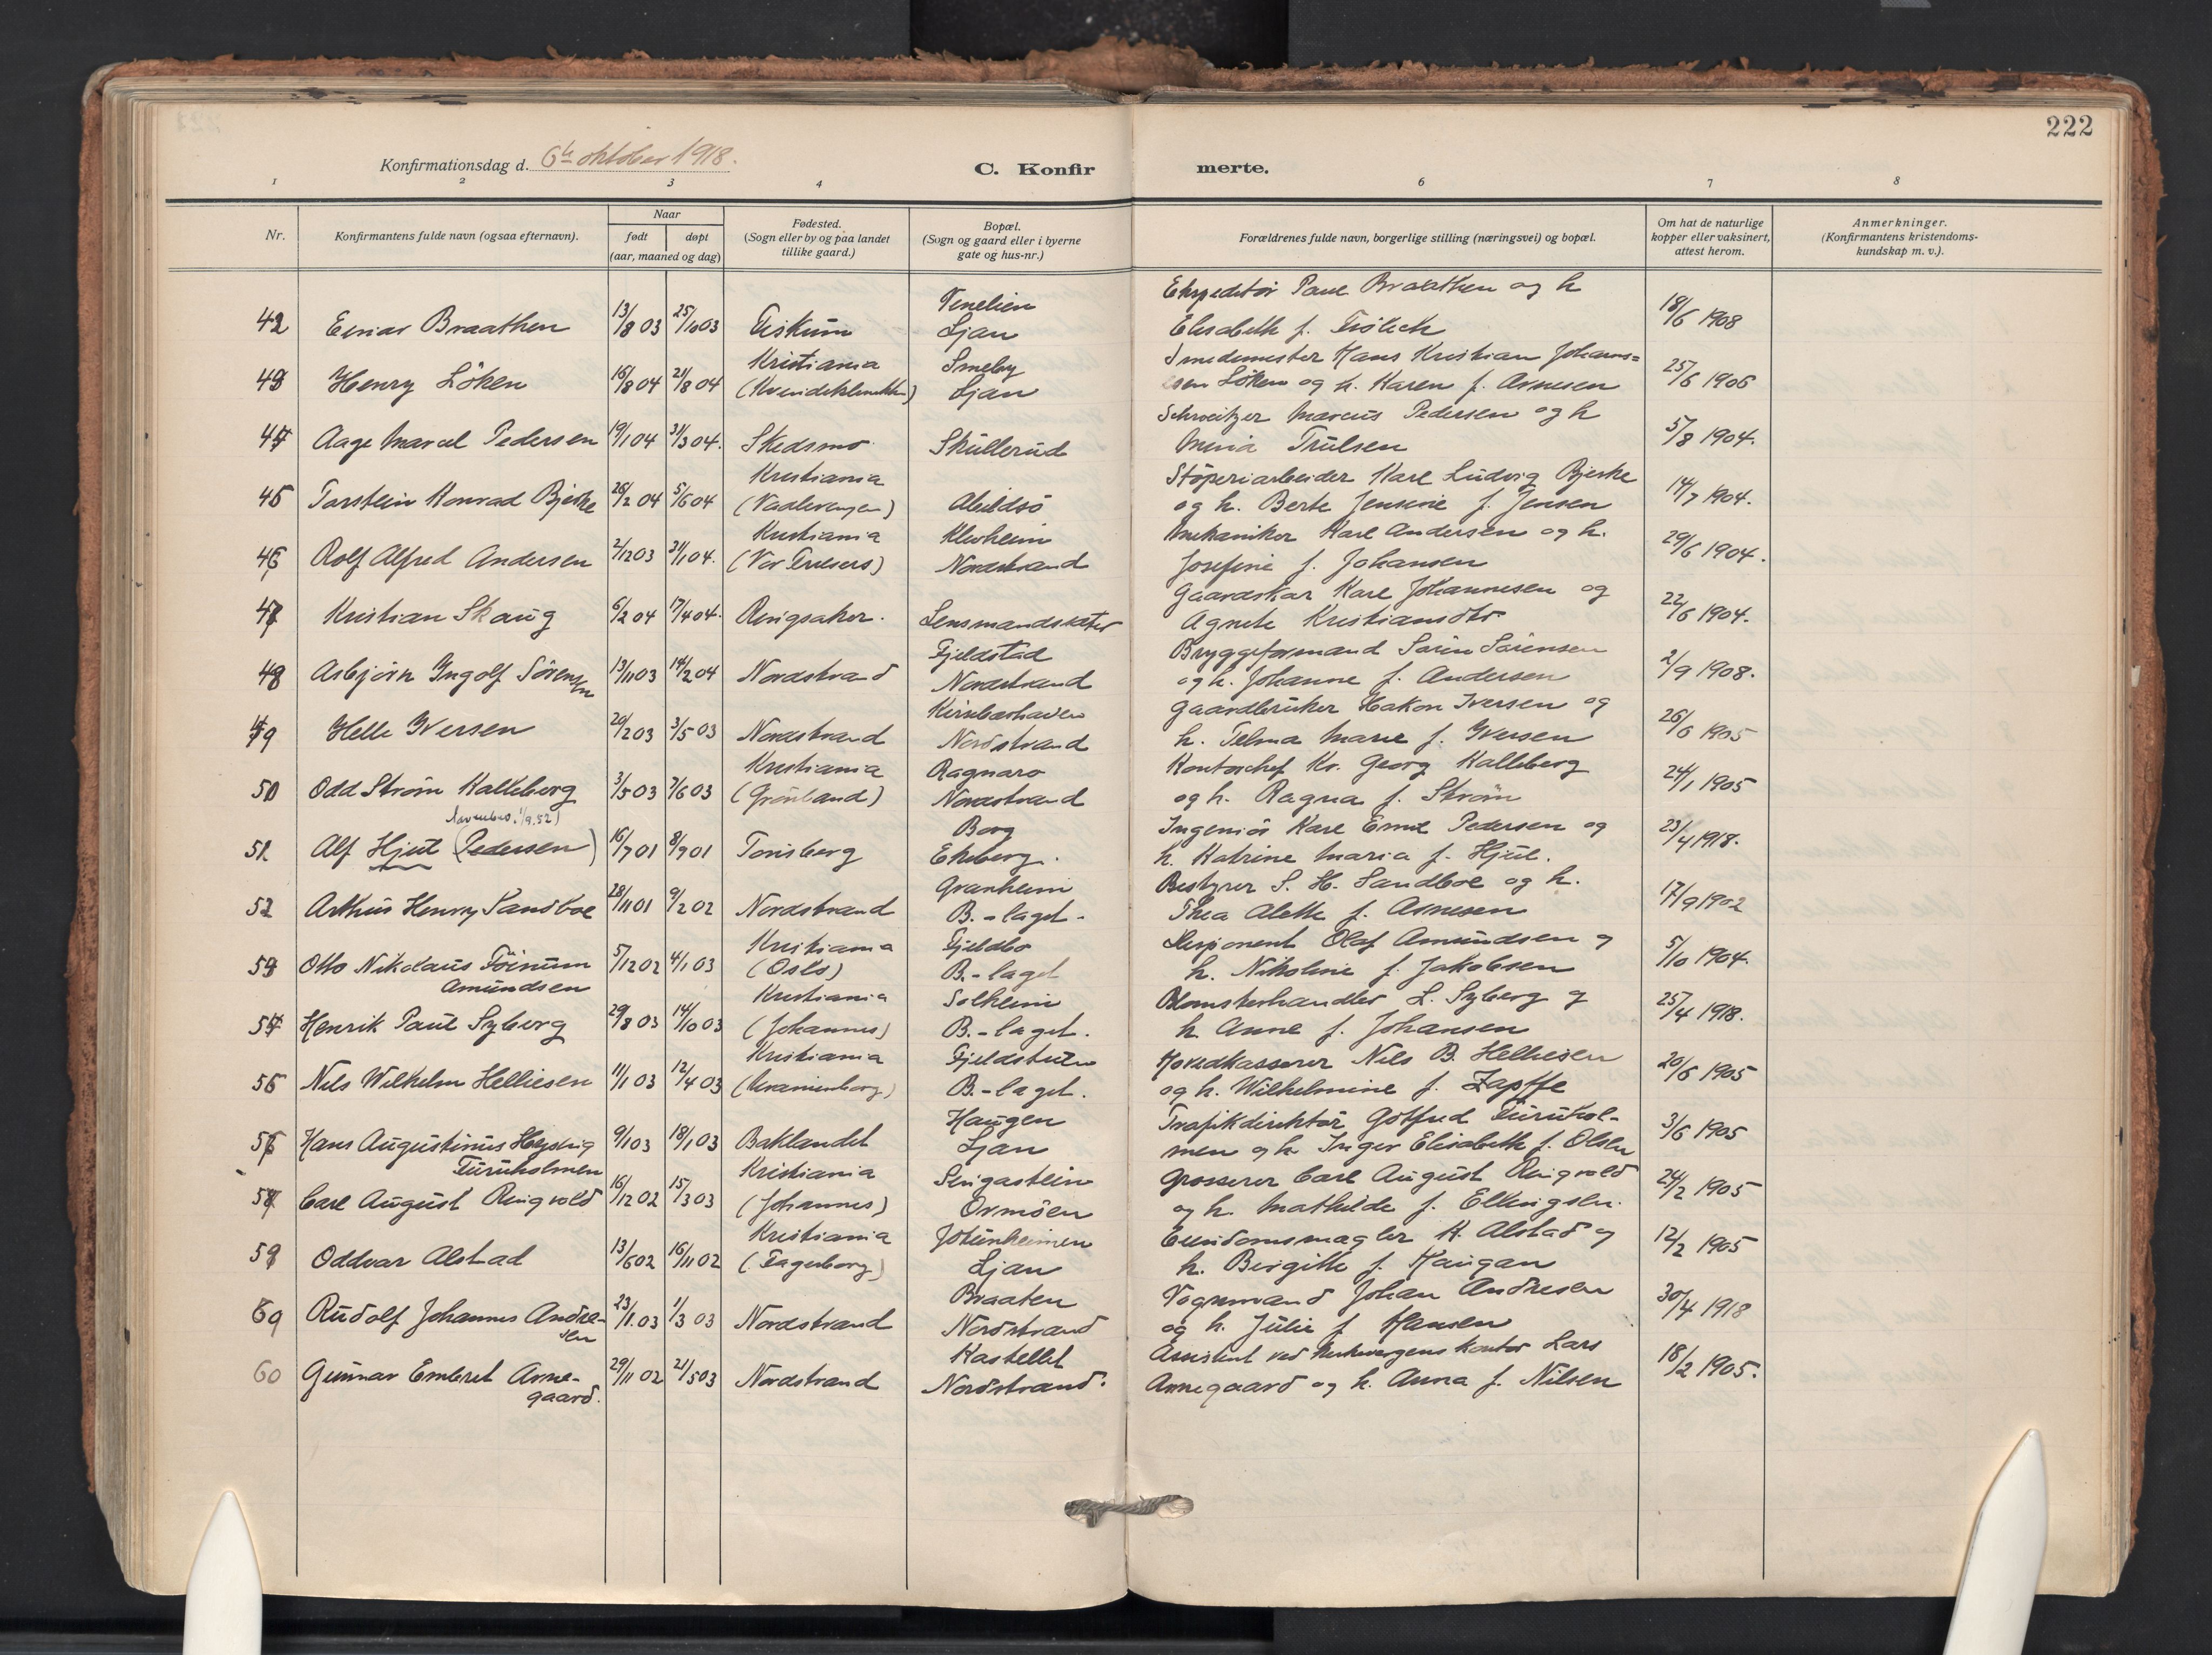 222
Konfirmationsdag d. 6te oktober 1918.
C. Konfir merte.
1 2 3 4 6 7 8
Nr.
Konfirmantens fulde navn (ogsaa efternavn).
Naar
født døpt
(aar, maaned og dag)
Fødested.
(Sogn eller by og paa landet
tillike gaard.)
Bopæl.
(Sogn og gaard eller i byerne
gate og hus-nr.)
Forældrenes fulde navn, borgerlige stilling (næringsvei) og bopæl.
Om hat de naturlige
kopper eller vaksinert,
attest herom.
Anmerkninger.
(Konfirmantens kristendoms-
kundskap m. v.).
Venelien Ekspeditør Paul Braathen og h
42 Einar Braathen 13/8 03 25/10 03 Fiskum Ljan Elisabeth f. 18/6 1908
Kristiania Smeby Smedemester Hans Kristian Johann=
43 Henry Löken 16/8 04 21/8 04 (Kvindeklinikken) Ljan sen Löken og h. Karen f. Arnesen 25/6 1906
Schweitzer Marcus Pedersen og h
44 Aage Marcel Pedersen 19/1 04 31/3 04. Skedsmo Skullerud Trulsen 5/8 1904.
Kristiania Støperiarbeider Karl Ludvig Bjerke
45 Torstein Konrad Bjerke 26/2 04 5/6 04 (Vaalerengen) Abildsö og h. Berte Jensine f. Jensen 14/7 1904.
Kristiania Mekaniker Karl Andersen og h.
46 Rolf Alfred Andersen 2/12 03 31/1 04. (Vor Frelsers) Nordstrand Josefine f. Johansen 29/6 1904.
Gaardskar Karl Johannesen og
47 Kristian Skaug 6/2 04 17/4 04. Ringsaker. Lensmandsæter Agnete Kristiansdtr. 22/6 1904.
Fjeldstad Bryggeformand Sørin Sörensen
48 Asbjörn Yngolf Sörensen 13/11 03 14/2 04 Nordstrand Nordstrand og h. Johanne f. Andersen 2/9 1908.
Kirsebærhaven Gaardbruker Hakon Iversen og
49 Helle Iversen 20/2 03 3/5 03 Nordstrand Nordstrand h. Telma Marie f. Iversen 26/6 1905
Kristiania Ragnaro Kontorchef Kr. Georg Kalleberg
50 Odd Strøm Kalleberg 3/5 03 7/6 03 (Grönland) Nordstrand og h. Ragna f. Strøm 24/1 1905
1/9.52) Borg Ingeniör Karl Emil Pedersen og
51 Alf Hjul (Pedersen) 16/7 01 8/9 01 Tönsberg Ekeberg. h. Katrine Maria f. Hjul. 23/4 1918.
Granheim Bestyrer S. H. Sandboe og h.
52 Arthur Henry Sandboe 28/11 01 9/2 02 Nordstrand B.-laget. Thea Alette f. Arnesen 17/9 1902
Kristiania Fjeldbo Disponent Olaf Amundsen og
53 Otto Nikolaus Föinum 5/12 02 4/1 03 (Oslo) B.-laget h. Nikoline f. Jakobsen 5/10 1904.
Amundsen
Kristiania Solheim Blomsterhandler L. Syberg og
54 Henrik Paul Syberg 29/8 03 14/10 03 (Johannes) B.-laget. h. Anne f. Johansen 25/4 1918.
Kristiania Fjeldstuen Hovedkasserer Nils B. Helliesen
55 Nils Wilhelm Helliesen 11/1 03 12/4 03 (Uranienborg) B.-laget. og h. Wilhelmine f. Zapffe 20/6 1905
Haugen Trafikdirektör Gotfred Furuhol-
56 Hans Augustinus 9/1 03 18/1 03 Baklandet Ljan men og h. Inger Elisabeth f. Olsen 3/6 1905
Furuholmen
Kristiania Singastein Grosserer Carl August Ringvold
57 Carl August Ringvold 16/12 02 15/3 03 (Johannes) Ormöen og h. Mathilde f. Ellingsen. 24/2 1905
Kristiania Jotunheimen Eiendomsmægler H. Alstad og
58 Oddvar Alstad 13/6 02 16/11 02 (Fagerborg) Ljan h. Birgitte f. Haugan 12/2 1905
Braaten Vognmand Johan Andresen
59 Rudolf Johannes Andre- 23/1. 03 1/3 03 Nordstrand Nordstrand og h. Julie f Hansen 30/4 1918
sen
Kastellet Assistent ved kontor Lars
60 Gunnar Embret Arne- 29/11 02 21/5 03 Nordstrand Nordstrand. Arnegaard og h. Anna f. Nilsen 18/2 1905.
gaard.